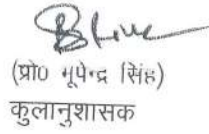 (प्रो० भूपेन्द्र सिंह)
कुलानुशासक